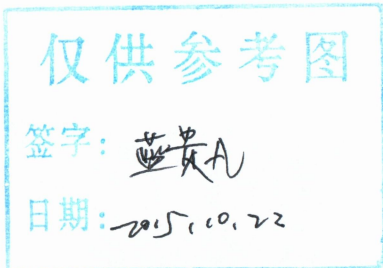 仅供参考图
签字：蓝贵凡
日期：2015.10.22